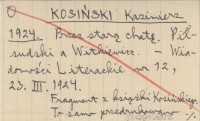 KOSIŃSKI Kazimierz
1924. Przez starą chatę. Pił-
sudski a Witkiewicz. - Wia-
domości Literackie nr 12,
23. III. 1924.
Fragment z książki Kosińskiego.
To samo przedrukowano